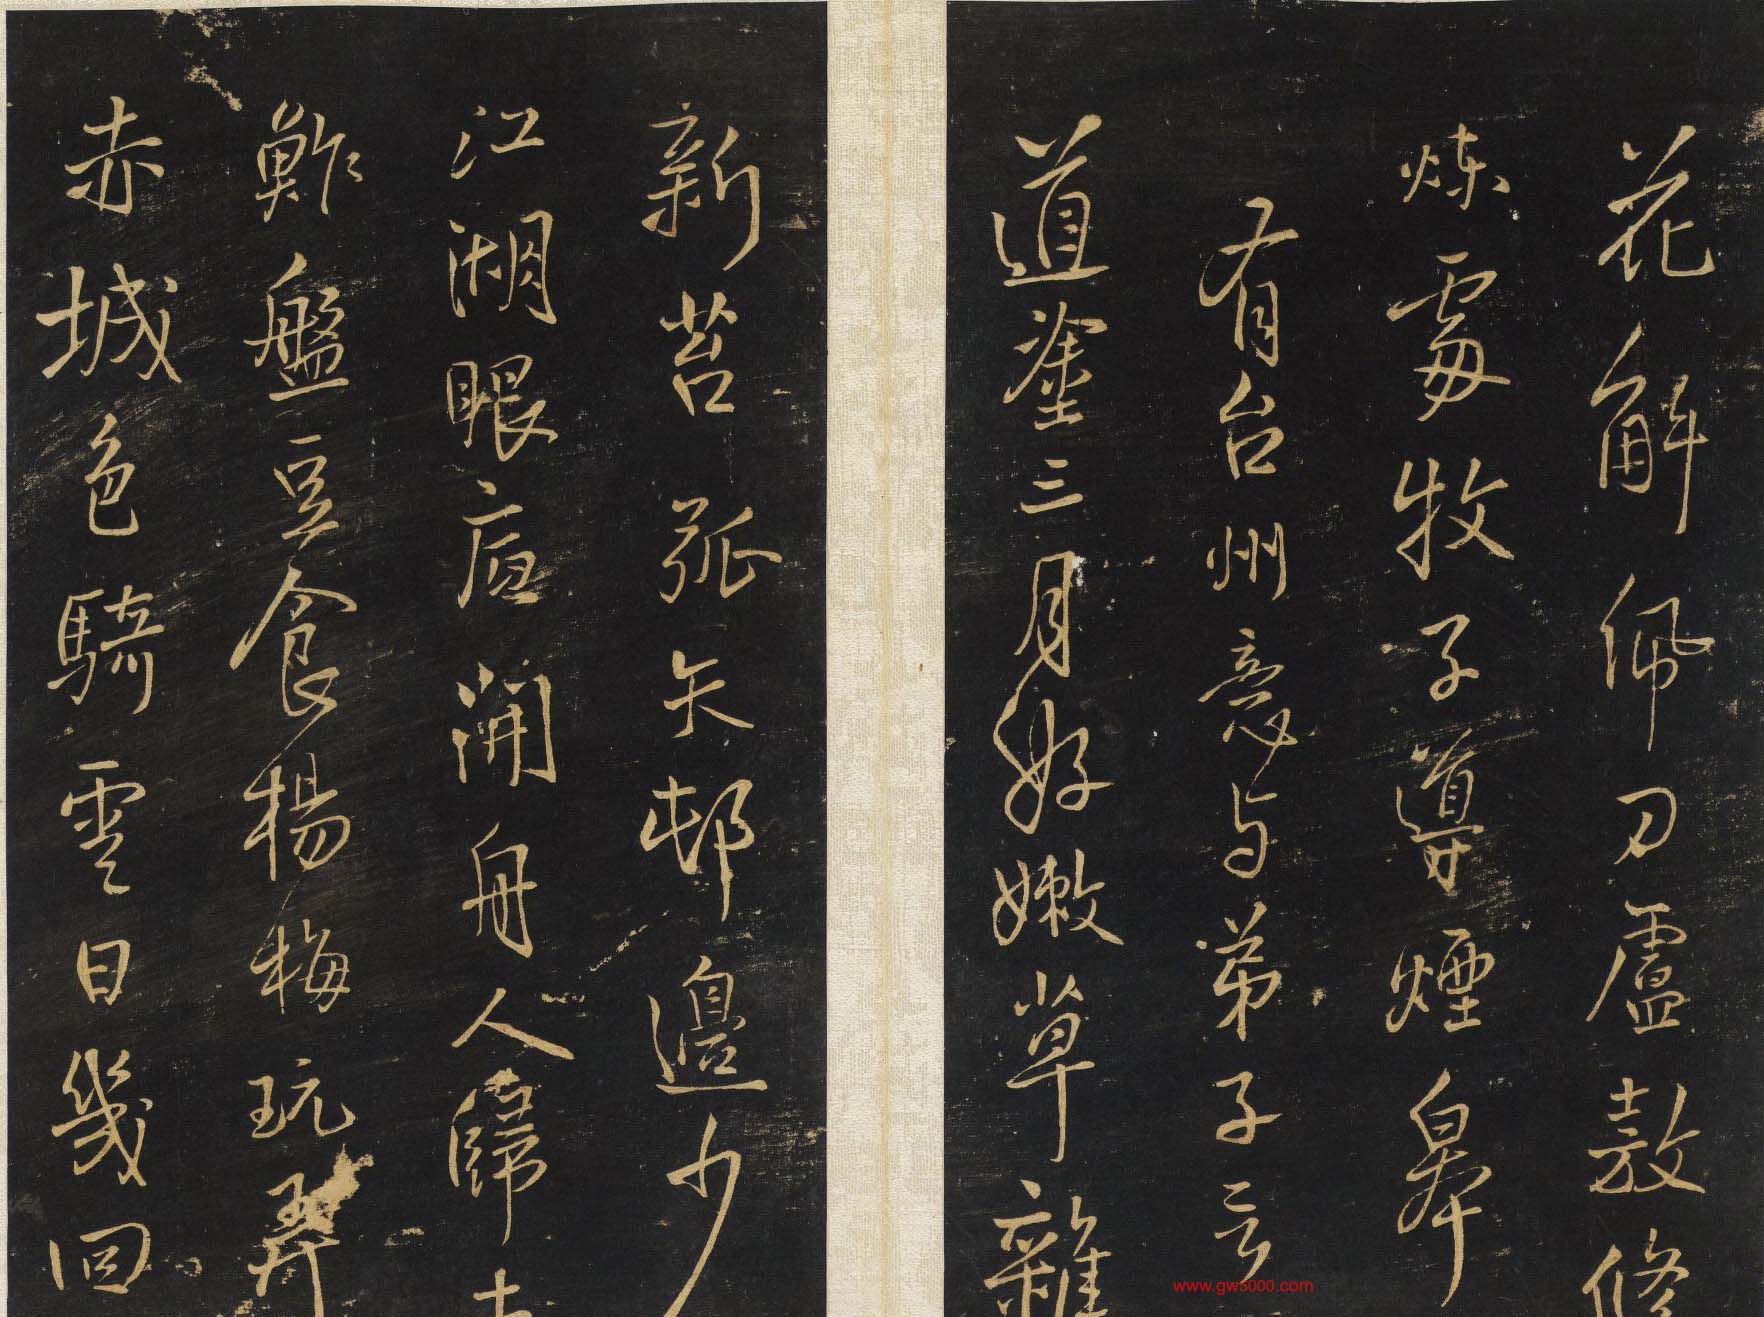 花解佩刀盧敖修
煉處牧子導煙皋
有台州意与弟子言
道塗三月好嫩草雜
新苔孤矢邨邊少
江湖眼底開舟人歸
鮓盤豆食楊梅玩弄
赤城色騎雲日幾回
www.gw5000.com